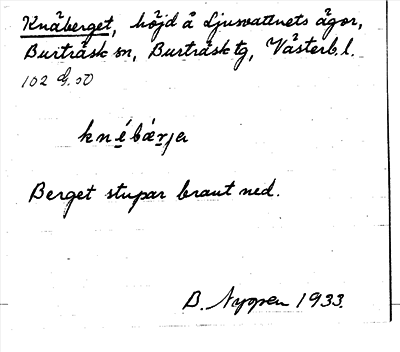 Knäberget, höjd å Ljusvattnets ägor,
Burträsk sn, Burträsk tg, Västerb. l.
102 G. 50
knébærja
Berget stupar brant ned.
B. Nygren 1933.